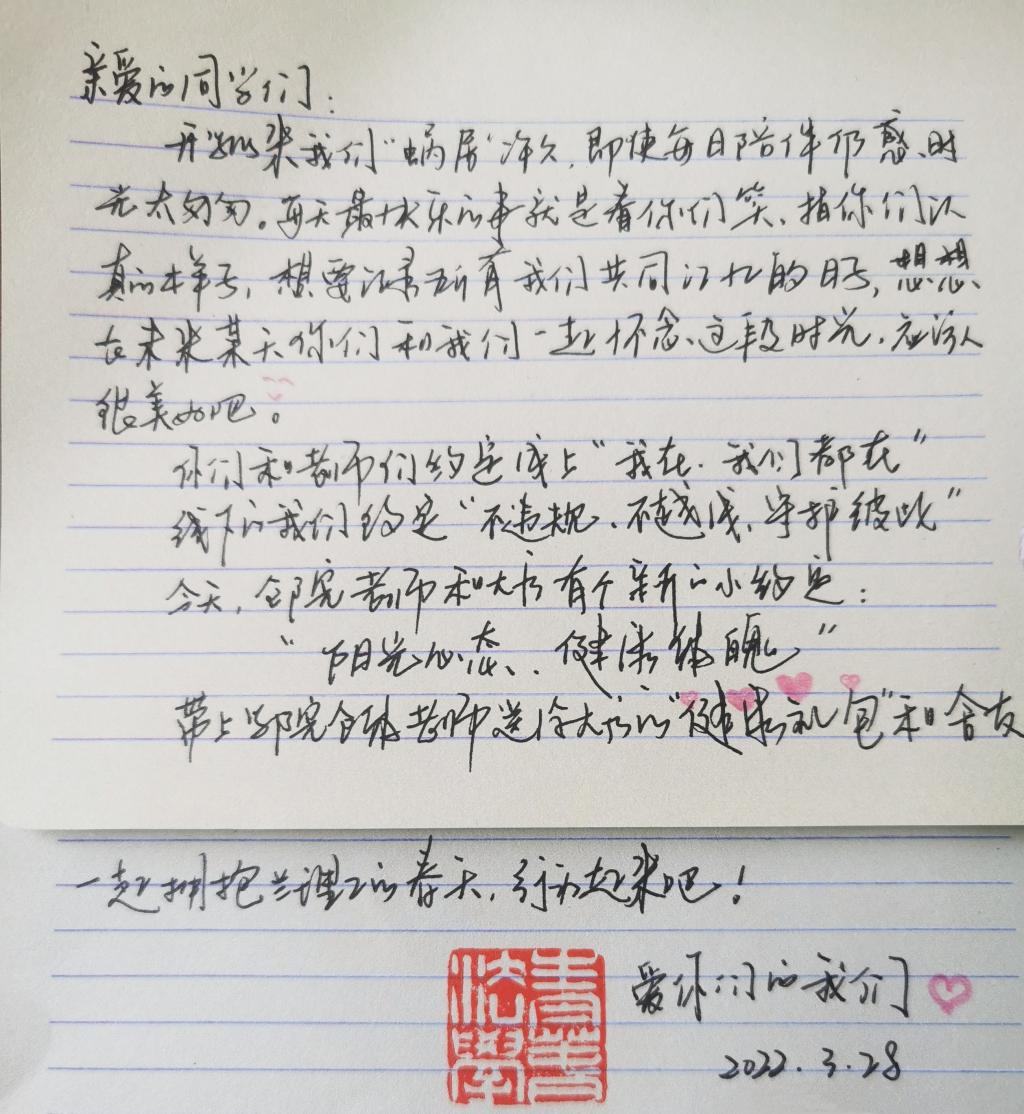 亲爱的同学们：
开学以来我们"蜗居"许久，即使每日陪伴仍感、时
光太匆匆。每天最快乐的事就是看你们笑、拍你们认
真的样子，想要记录所有我们共同记忆的日子，想想、
在未来某天你们和我们一起怀念、这段时光，应该
很美好吧。
你们和老师们约定线上"我在，我们都在"
线下的我们约定"不违规、不越线，守护彼此"
今天，全院老师和大家有个新的小约定：
"阳光心态、健康体魄"
带上学院全体老师送给大家的"健康礼包"和舍友
一起拥抱兰理工的春天，行动起来吧！
爱你们的我们
2022.3.28